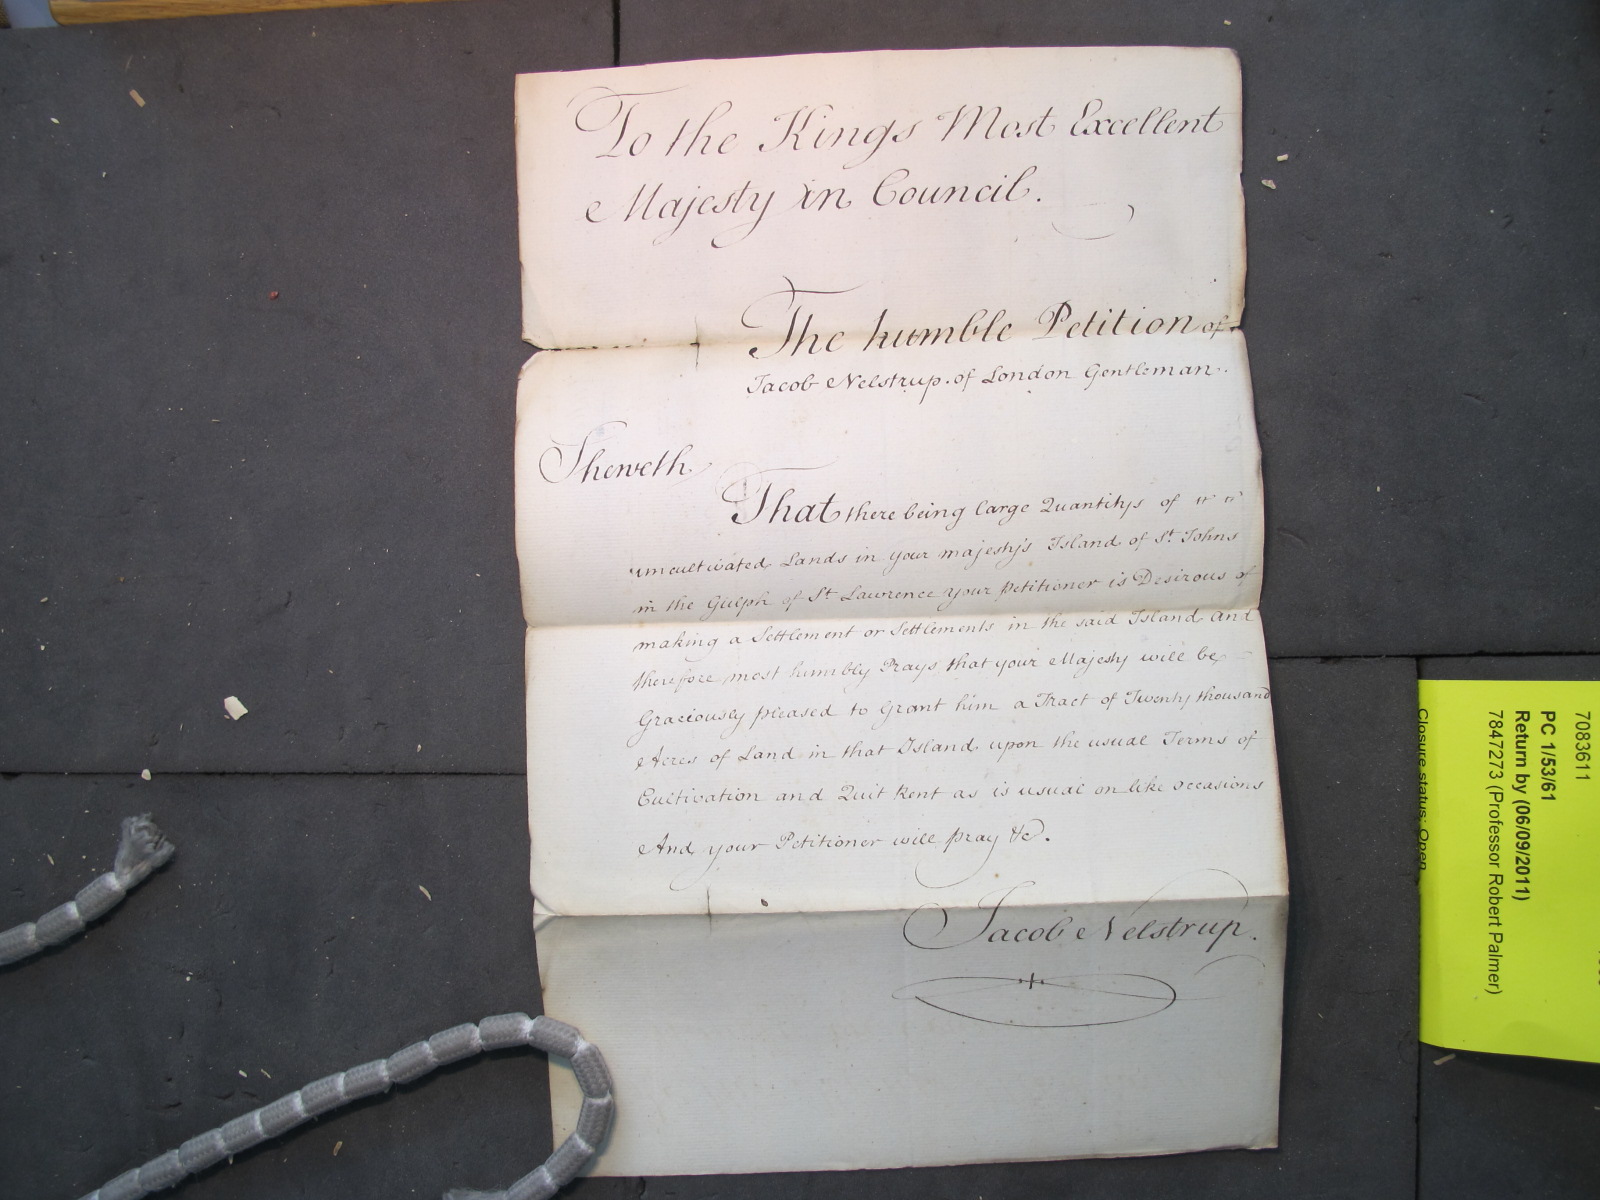 To the Kings Most Excellent
Majesty in Council.
The humble Petition of
Jacob Nelstrup. of London Gentleman.
Sheweth
That there being large Quantitys of
uncultivated Lands in your majesty's Island of St. Johns
in the Gulph of St. Lawrence your Petitioner is Desirous of
making a Settlement or Settlements in the said Island and
therefore most humbly Prays that your Majesty will be
Graciously pleased to Grant him a Tract of Twenty thousand
Acres of Land in that Island upon the usual Terms of
Cultivation and Quit Rent as is usual on like occasions
And your Petitioner will pray &c.
Jacob Nelstrup.
7083611
PC 1/53/61
Return by (06/09/2011)
7847273 (Professor Robert Palmer)
Closure status: Open